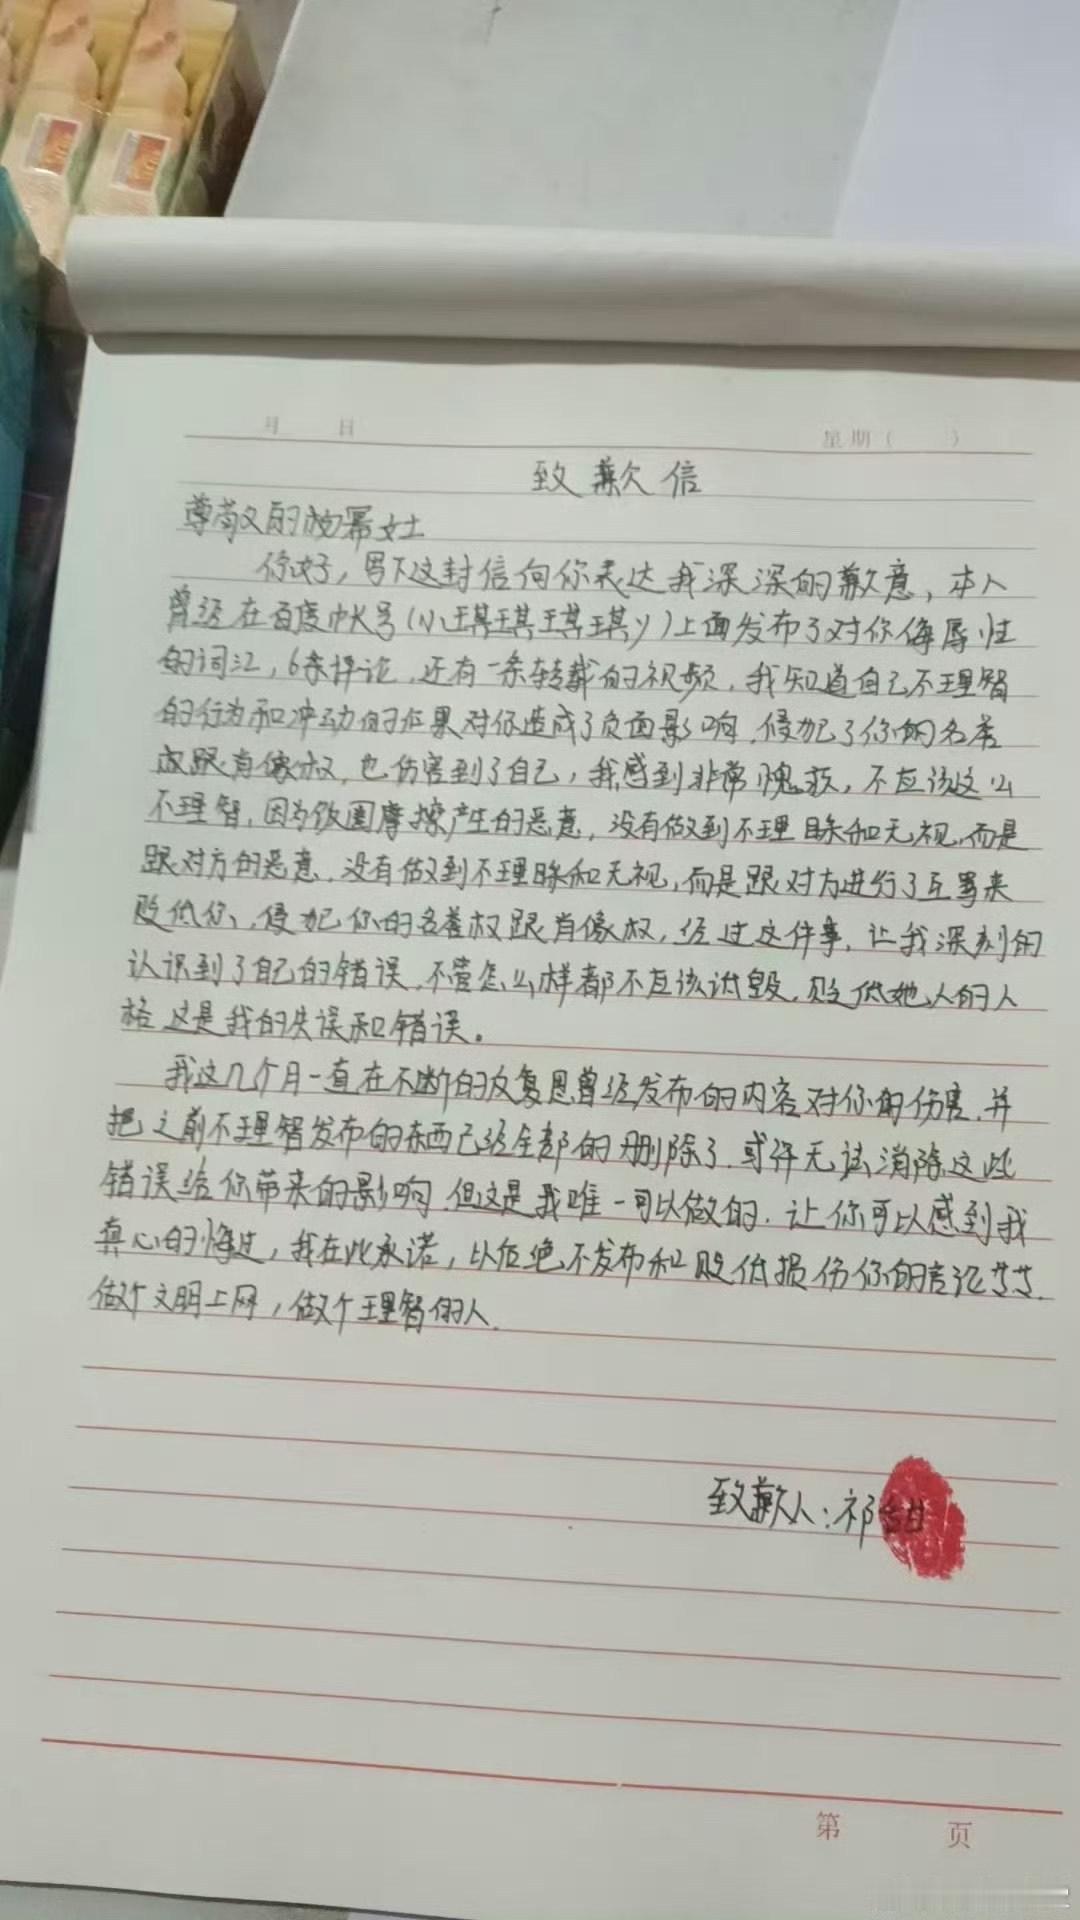 月 日 星期( )
致歉信
尊敬的杨幂女士
你好，写下这封信向你表达我深深的歉意，本人
曾经在百度帐号(小琪琪琪琪y)上面发布了对你侮辱性
的词汇，6条评论，还有一条转载的视频，我知道自己不理智
的行为和冲动的后果对你造成了负面影响，侵犯了你的名誉
权跟肖像权，也伤害到了自己，我感到非常愧疚，不应该这么
不理智，因为饭圈摩擦产生的恶意，没有做到不理睬和无视，而是
跟对方的恶意，没有做到不理睬和无视，而是跟对方进行了互骂来
贬低你，侵犯你的名誉权跟肖像权，经过这件事，让我深刻的
认识到了自己的错误，不管怎么样都不应该诋毁，贬低她人的人
格这是我的失误和错误。
我这几个月一直在不断的反复思曾经发布的内容对你的伤害，并
把之前不理智发布的东西已经全部的删除了，或许无法消除这些
错误给你带来的影响，但这是我唯一可以做的，让你可以感到我
真心的悔过，我在此承诺，以后绝不发布和贬低损伤你的言论
做个文明上网，做个理智的人.
致歉人：祁
第 页